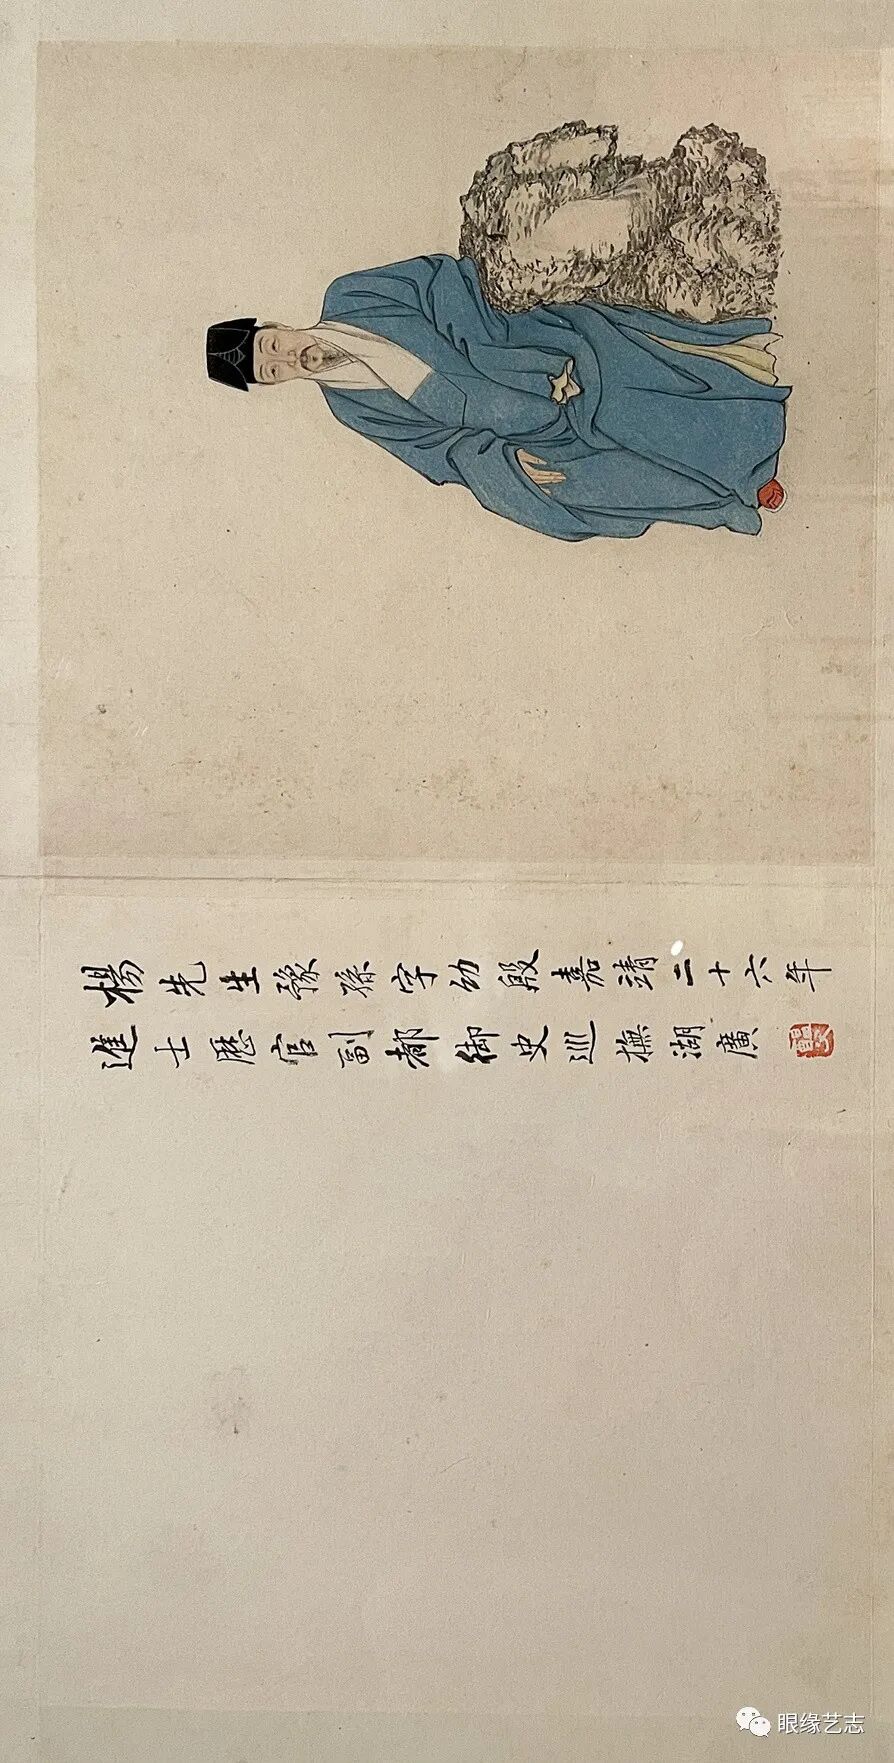 楊先生豫孫字幼殷嘉靖二十六年
進士歷官副都御史巡撫湖廣
眼缘艺志